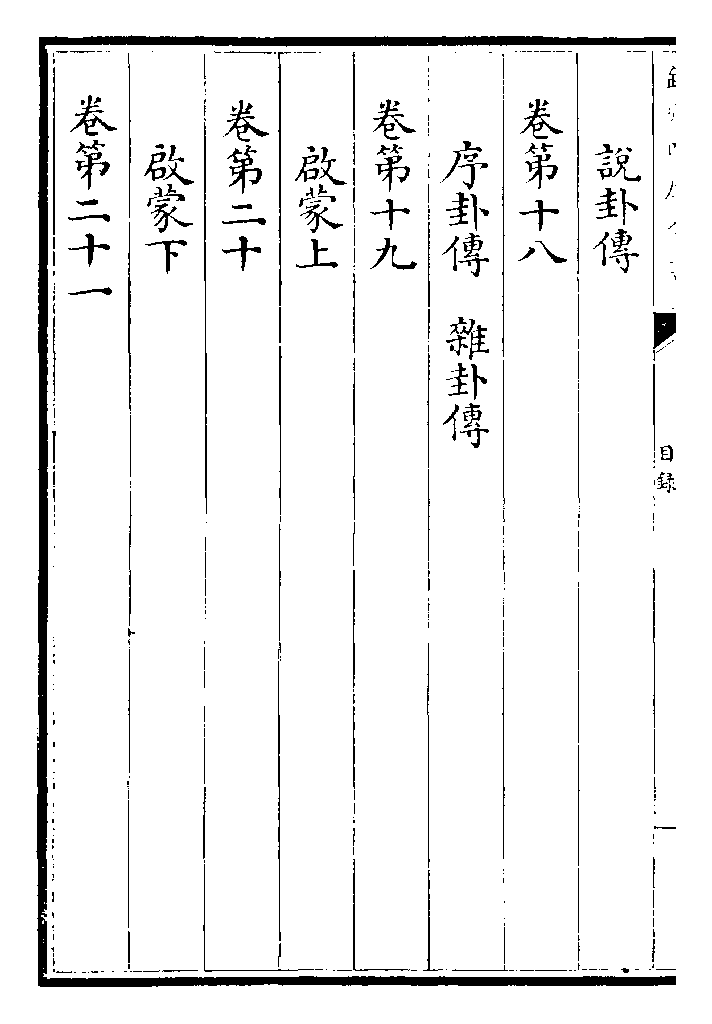 說卦傳
卷第十八
序卦傳　雜卦傳
卷第十九
啟蒙上
卷第二十
啟蒙下
卷第二十一
目録